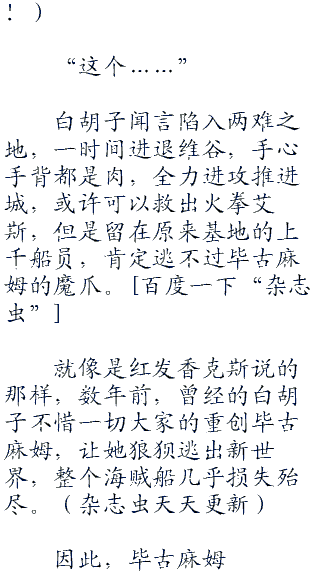 ！ ）
“这个……”
白胡子闻言陷入两难之
地，一时间进退维谷，手心
手背都是肉，全力进攻推进
城，或许可以救出火拳艾
斯，但是留在原来基地的上
千船员，肯定逃不过毕古麻
姆的魔爪。[百度一下“杂志
虫”]
就像是红发香克斯说的
那样，数年前，曾经的白胡
子不惜一切大家的重创毕古
麻姆，让她狼狈逃出新世
界，整个海贼船几乎损失殆
尽。（杂志虫天天更新）
因此，毕古麻姆